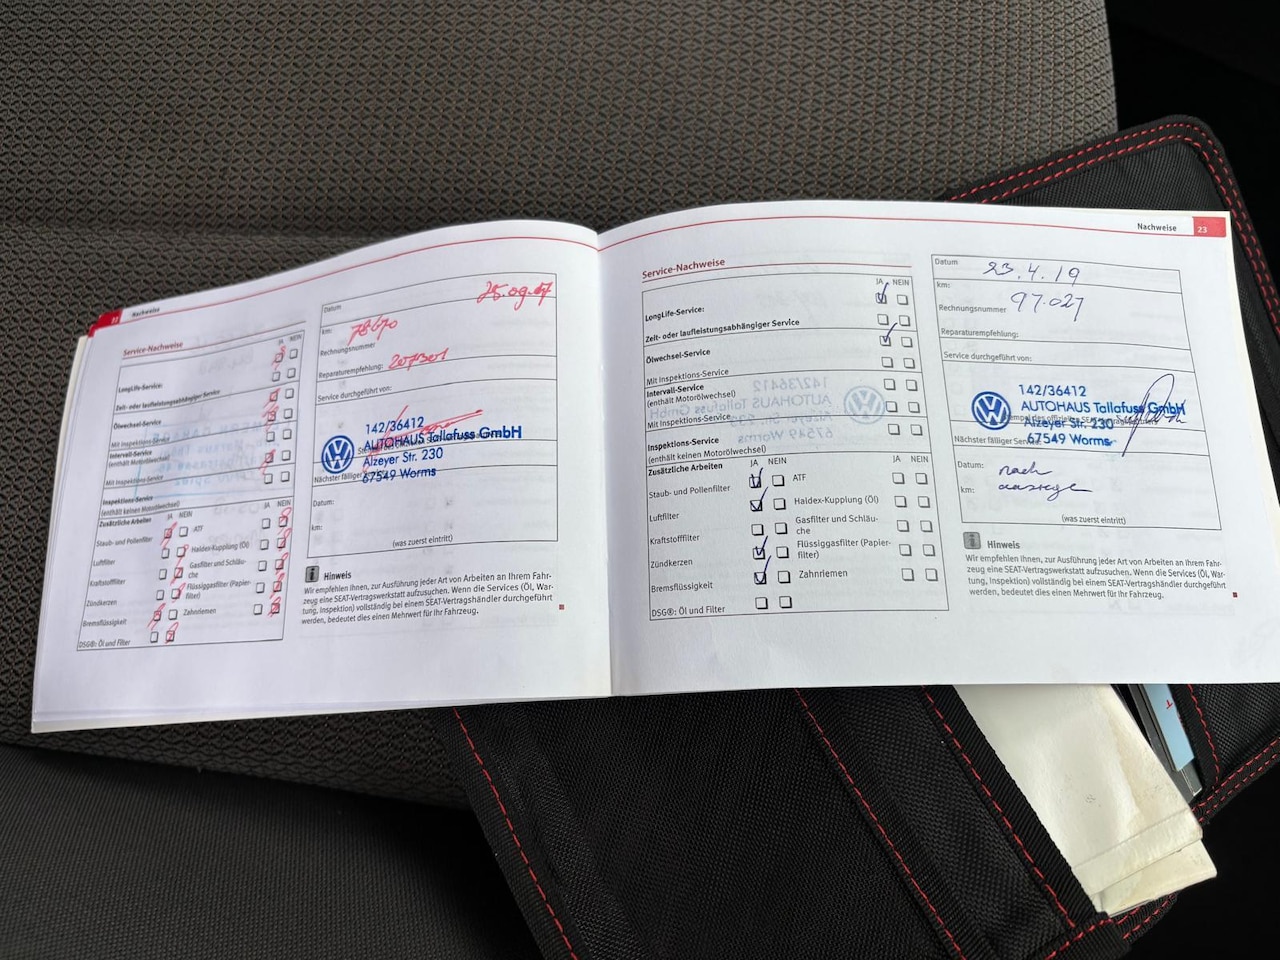 22
Nachweise
Service-Nachweise
JA NEIN
LongLife-Service:
Zeit- oder laufleistungsabhängiger Service
Ölwechsel-Service
Mit Inspektions-Service
Intervall-Service
(enthält Motorölwechsel)
Mit Inspektions-Service
Inspektions-Service
(enthält keinen Motorölwechsel)
Zusätzliche Arbeiten
JA NEIN
JA NEIN
Staub- und Pollenfilter
ATF
Luftfilter
Haldex-Kupplung (Öl)
Kraftstofffilter
Gasfilter und Schläu-
che
Zündkerzen
Flüssiggasfilter (Papier-
filter)
Bremsflüssigkeit
Zahnriemen
DSG®: Öl und Filter
Datum
25.09.17
km:
78670
Rechnungsnummer
Reparaturempfehlung:
Service durchgeführt von:
142/36412
AUTOHAUS Tallafuss GmbH
Alzeyer Str. 230
67549 Worms
Nächster fälliger Service:
Datum:
km:
(was zuerst eintritt)
Hinweis
Wir empfehlen Ihnen, zur Ausführung jeder Art von Arbeiten an Ihrem Fahr-
zeug eine SEAT-Vertragswerkstatt aufzusuchen. Wenn die Services (Öl, War-
tung, Inspektion) vollständig bei einem SEAT-Vertragshändler durchgeführt
werden, bedeutet dies einen Mehrwert für Ihr Fahrzeug.
Nachweise
23
Service-Nachweise
JA NEIN
LongLife-Service:
Zeit- oder laufleistungsabhängiger Service
Ölwechsel-Service
Mit Inspektions-Service
Intervall-Service
(enthält Motorölwechsel)
Mit Inspektions-Service
Inspektions-Service
(enthält keinen Motorölwechsel)
Zusätzliche Arbeiten
JA NEIN
JA NEIN
Staub- und Pollenfilter
ATF
Luftfilter
Haldex-Kupplung (Öl)
Kraftstofffilter
Gasfilter und Schläu-
che
Zündkerzen
Flüssiggasfilter (Papier-
filter)
Bremsflüssigkeit
Zahnriemen
DSG®: Öl und Filter
Datum
23.4.19
km:
97.027
Rechnungsnummer
Reparaturempfehlung:
Service durchgeführt von:
142/36412
AUTOHAUS Tallafuss GmbH
Alzeyer Str. 230
67549 Worms
Nächster fälliger Service:
Datum:
nach
km:
anzeige
(was zuerst eintritt)
Hinweis
Wir empfehlen Ihnen, zur Ausführung jeder Art von Arbeiten an Ihrem Fahr-
zeug eine SEAT-Vertragswerkstatt aufzusuchen. Wenn die Services (Öl, War-
tung, Inspektion) vollständig bei einem SEAT-Vertragshändler durchgeführt
werden, bedeutet dies einen Mehrwert für Ihr Fahrzeug.